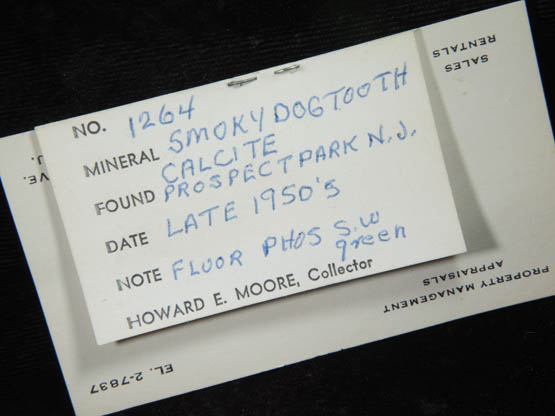 NO. 1264
MINERAL SMOKY DOGTOOTH
CALCITE
FOUND PROSPECT PARK N.J.
DATE LATE 1950'S
NOTE FLUOR PHOS S.W
green
HOWARD E. MOORE, Collector
SALES
RENTALS
PROPERTY MANAGEMENT
APPRAISALS
EL. 2-7837
VE.
J.